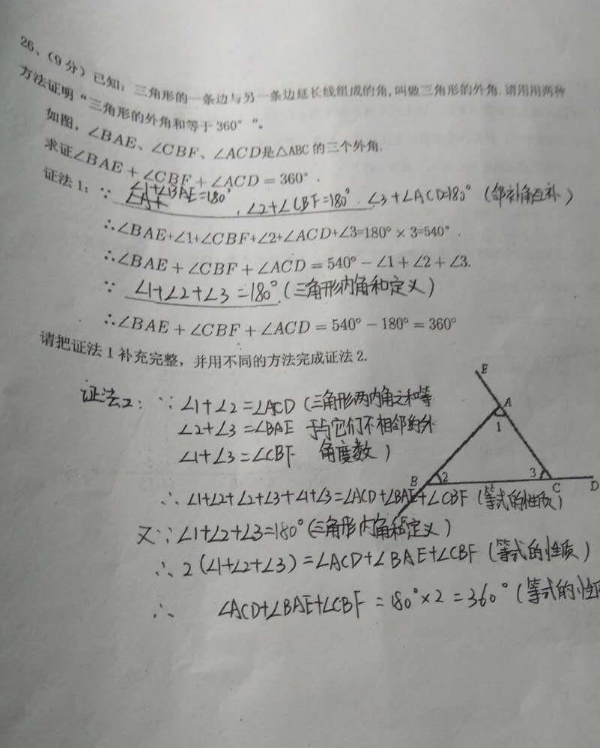 26、(9分) 已知：三角形的一条边与另一条边延长线组成的角,叫做三角形的外角.请用用两种
方法证明“三角形的外角和等于360°”。
如图，∠BAE、∠CBF、∠ACD是△ABC的三个外角.
求证∠BAE+∠CBF+∠ACD=360°.
证法1：∵ ∠1+∠BAE=180°，∠2+∠CBF=180°.∠3+∠ACD=180°（邻补角互补）
∴∠BAE+∠1+∠CBF+∠2+∠ACD+∠3=180°×3=540°.
∴∠BAE+∠CBF+∠ACD=540°-∠1+∠2+∠3.
∵ ∠1+∠2+∠3=180°（三角形内角和定义）
∴∠BAE+∠CBF+∠ACD=540°-180°=360°
请把证法1补充完整，并用不同的方法完成证法2.
证法2：∵∠1+∠2=∠ACD（三角形两内角之和等
∠2+∠3=∠BAE 于与它们不相邻的外
∠1+∠3=∠CBF 角度数）
E
A
1
B 2 3 C D
∴∠1+∠2+∠2+∠3+∠1+∠3=∠ACD+∠BAE+∠CBF（等式的性质）
又∵∠1+∠2+∠3=180°（三角形内角和定义）
∴2（∠1+∠2+∠3）=∠ACD+∠BAE+∠CBF（等式的性质）
∴ ∠ACD+∠BAE+∠CBF=180°×2=360°（等式的性